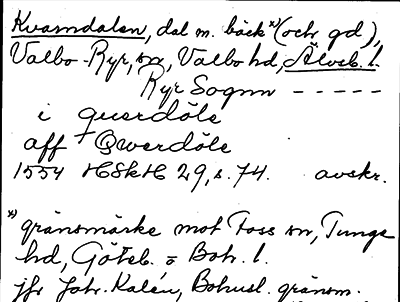 Kvarndalen, dal m. bäck x) (och gd),
Valbo-Ryr, sn, Valbo hd, Älvsb. l.
Ryr Sognn -----
i querdöle
aff Qwerdöle
1554 HSkH 29, s. 74. avskr.
x) gränsmärke mot Foss sn, Tunge
hd, Göteb. o Boh. l.
jfr Joh. Kalén, Bohusl. gränsm.